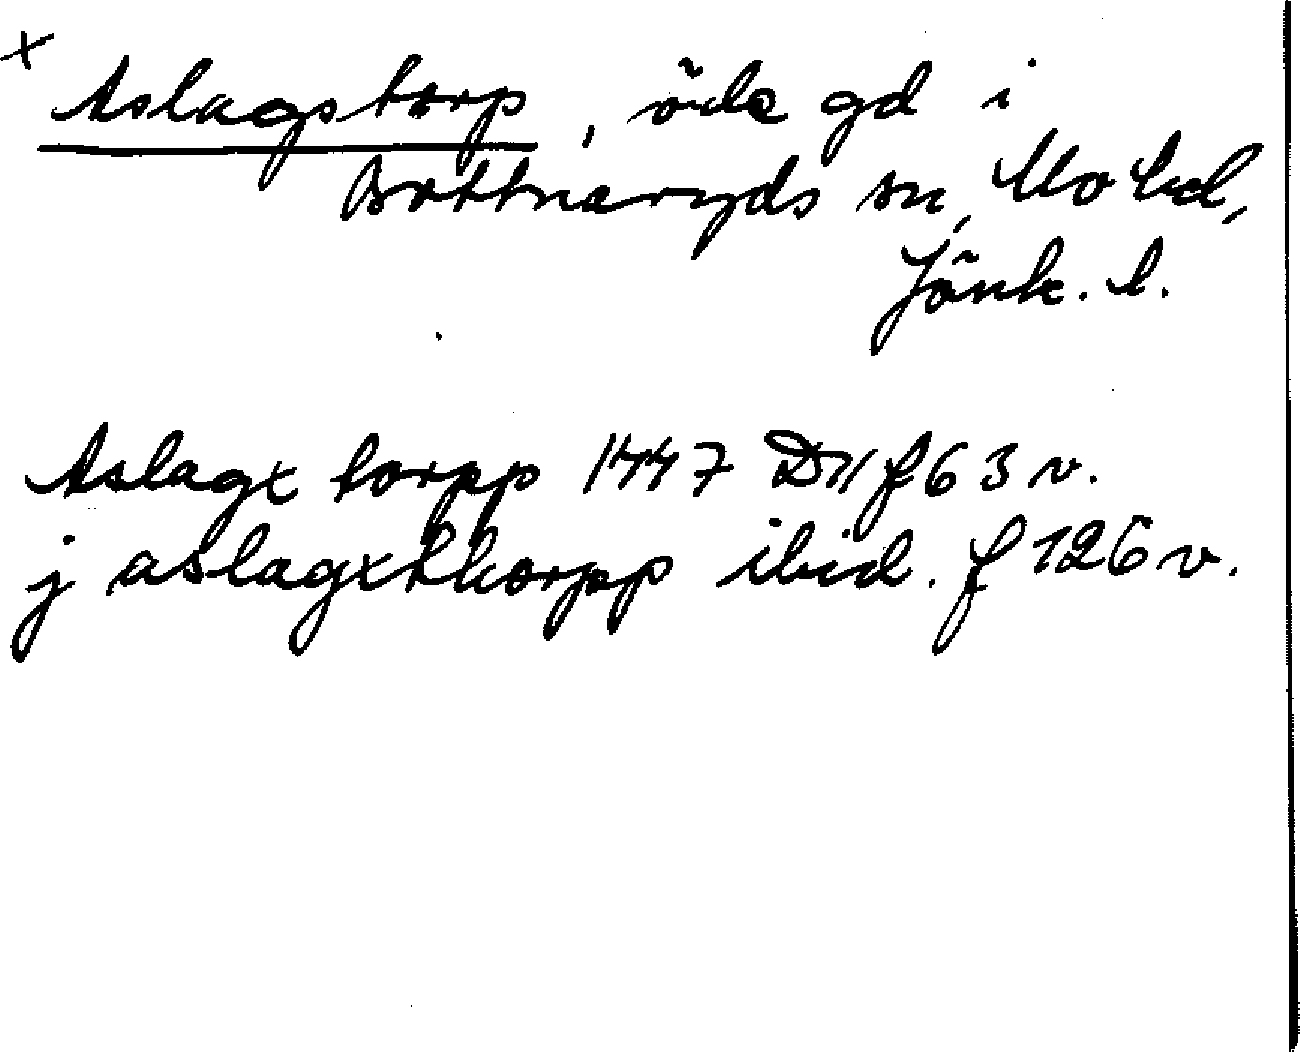 x
Aslagstorp, öde gd i
Bottnaryds sn, Mo hd,
Jönk. l.
Aslagx torpp 1447 D11 f 63 v.
j aslagxthorpp ibid. f 126 v.